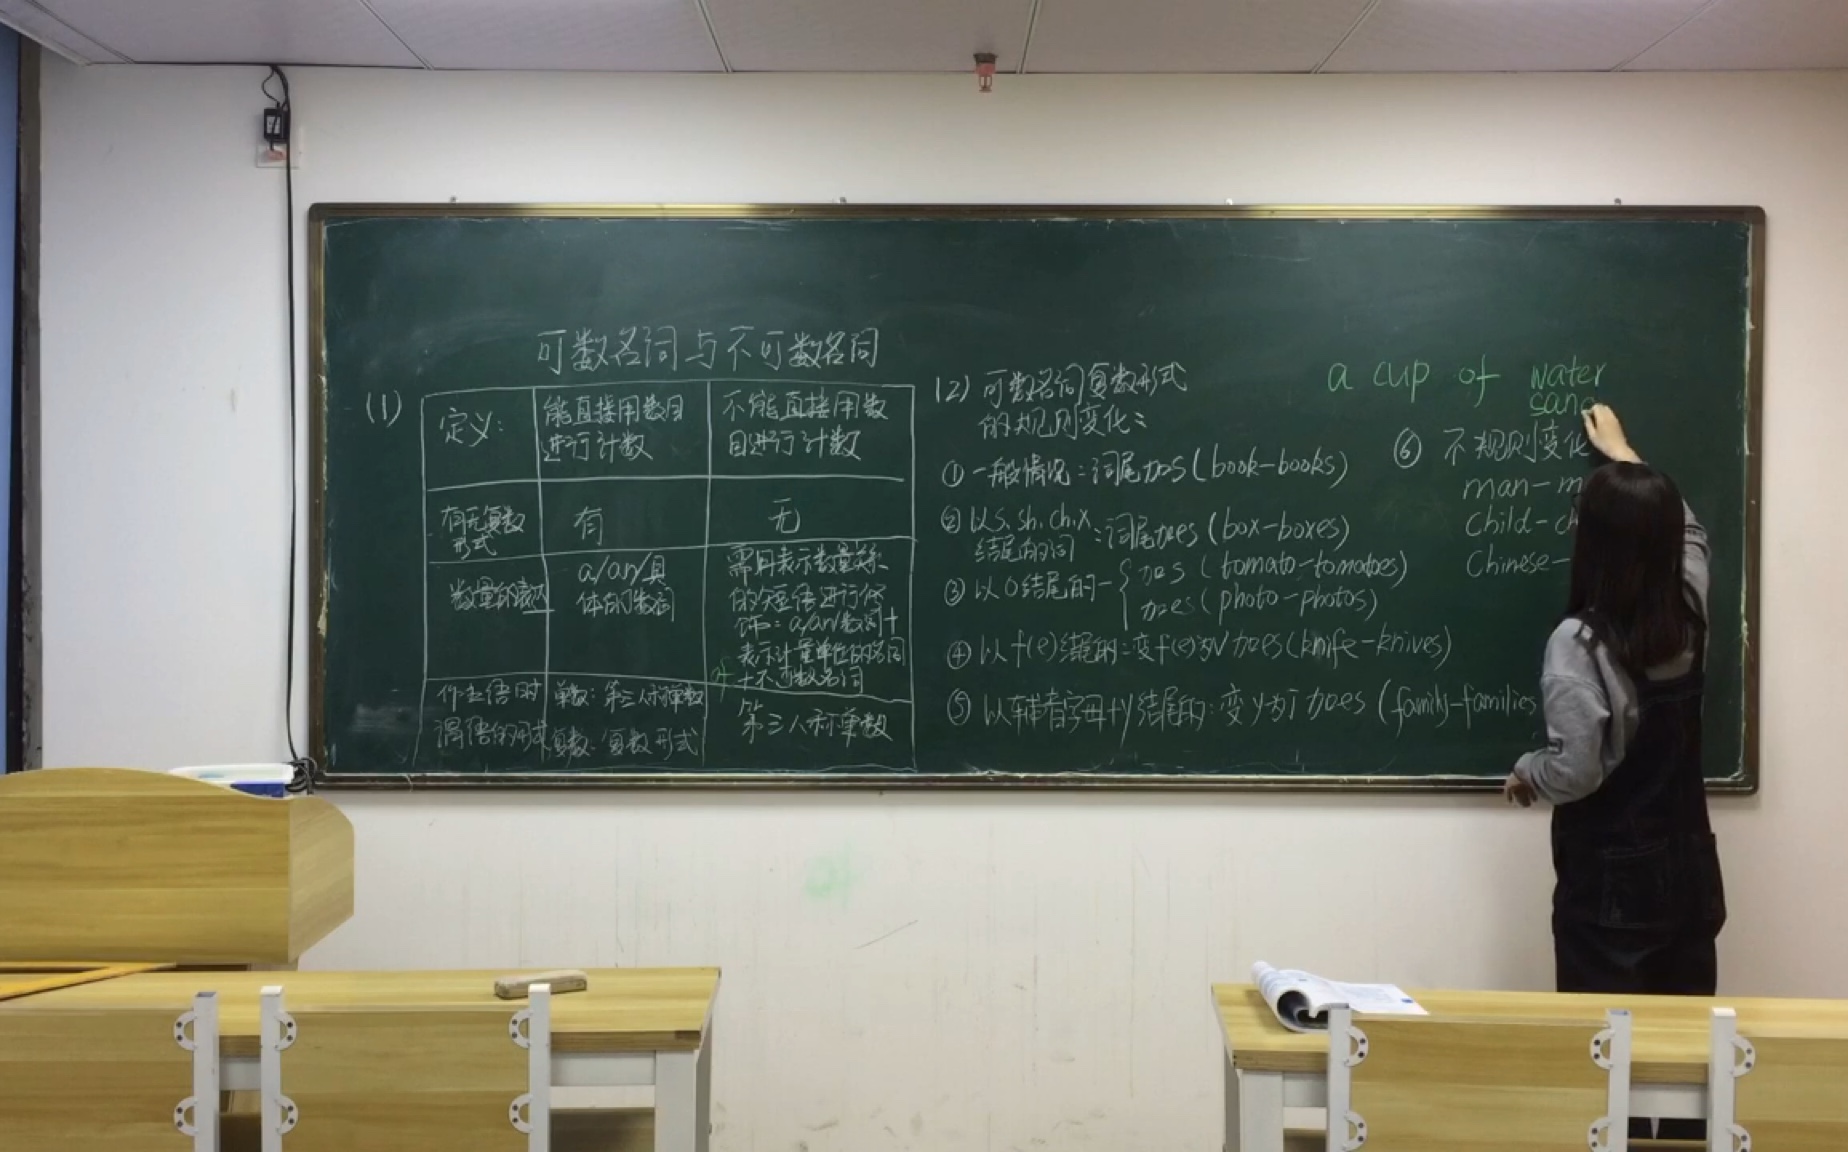 可数名词与不可数名词
(1)
定义:
能直接用数目
进行计数
不能直接用数
目进行计数
有无复数
形式
有
无
数量的表达
a/an/具
体的数词
需用表示数量关系
的短语进行修
饰:a/an/数词+
表示计量单位的名词
of
+不可数名词
作主语时
谓语的形式
单数:第三人称单数
复数:复数形式
第三人称单数
(2) 可数名词复数形式
的规则变化:
① 一般情况:词尾加s (book-books)
② 以s. sh. ch. x
结尾的词:词尾加es (box-boxes)
③ 以o结尾的-{加s (tomato-tomatoes)
加es (photo-photos)
④ 以f(e)结尾的:变f(e)为v加es (knife-knives)
⑤ 以辅音字母+y结尾的:变y为i加es (family-families
a cup of water
sand
⑥ 不规则变化
man-m
child-c
Chinese-